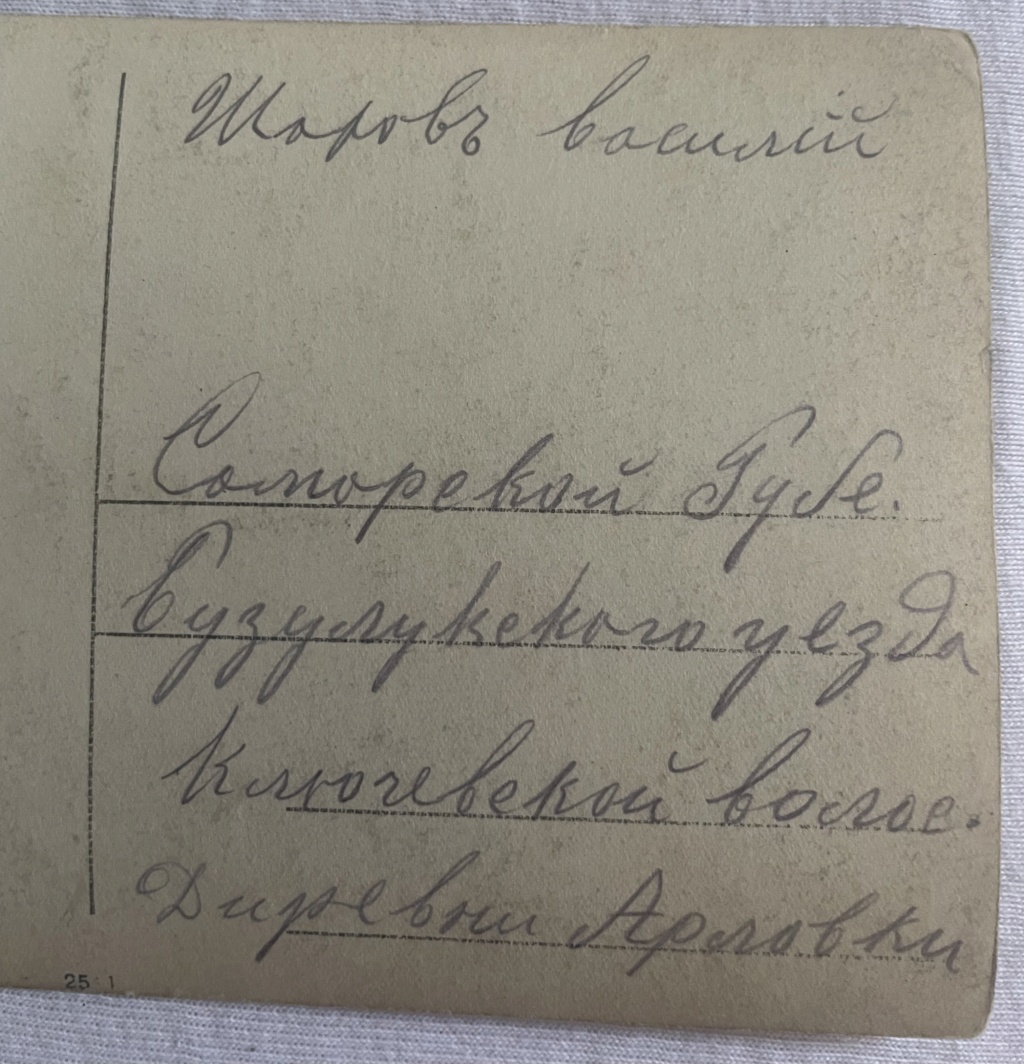 Шаровъ василій
Саморской Губе.
Бузулукского уезда
Ключевской волос.
Диревни Арловки
25 1